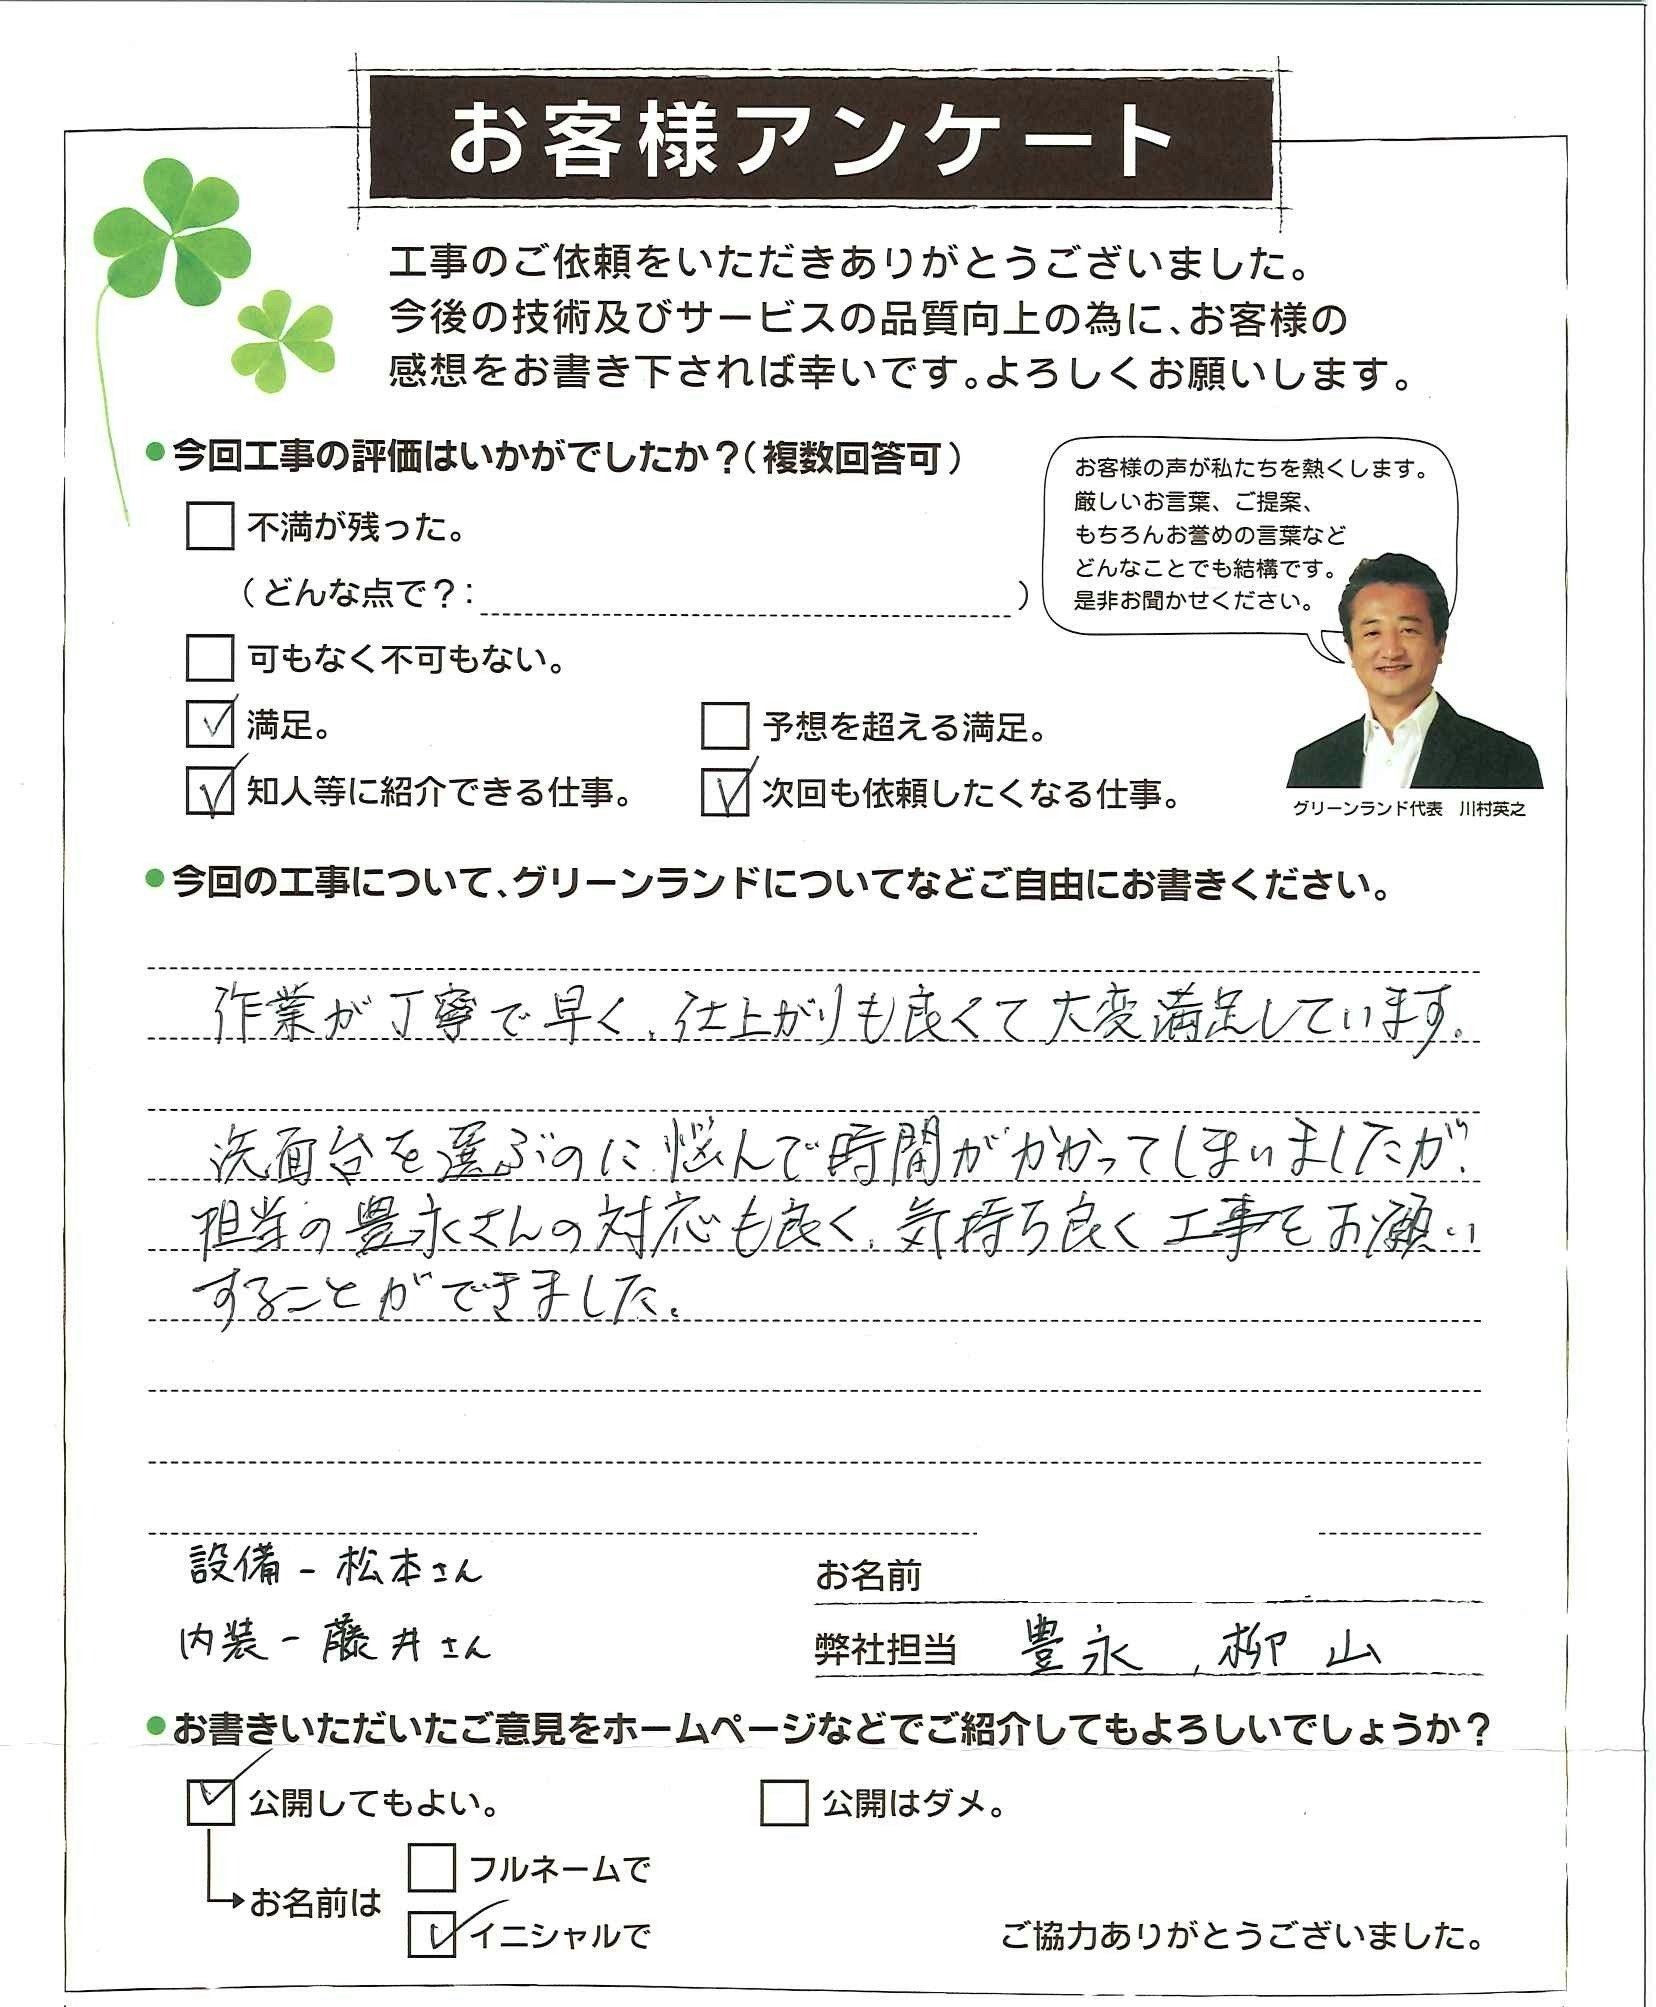 お客様アンケート
工事のご依頼をいただきありがとうございました。
今後の技術及びサービスの品質向上の為に、お客様の
感想をお書き下されば幸いです。よろしくお願いします。
●今回工事の評価はいかがでしたか？（複数回答可）
不満が残った。
（どんな点で？：　）
可もなく不可もない。
満足。
予想を超える満足。
知人等に紹介できる仕事。
次回も依頼したくなる仕事。
お客様の声が私たちを熱くします。
厳しいお言葉、ご提案、
もちろんお誉めの言葉など
どんなことでも結構です。
是非お聞かせください。
グリーンランド代表　川村英之
●今回の工事について、グリーンランドについてなどご自由にお書きください。
作業が丁寧で早く、仕上がりも良くて大変満足しています。
洗面台を選ぶのに悩んで時間がかかってしまいましたが、
担当の豊永さんの対応も良く、気持ち良く工事をお願い
することができました。
設備－松本さん
内装－藤井さん
お名前
弊社担当　豊永、柳山
●お書きいただいたご意見をホームページなどでご紹介してもよろしいでしょうか？
公開してもよい。
公開はダメ。
お名前は
フルネームで
イニシャルで
ご協力ありがとうございました。